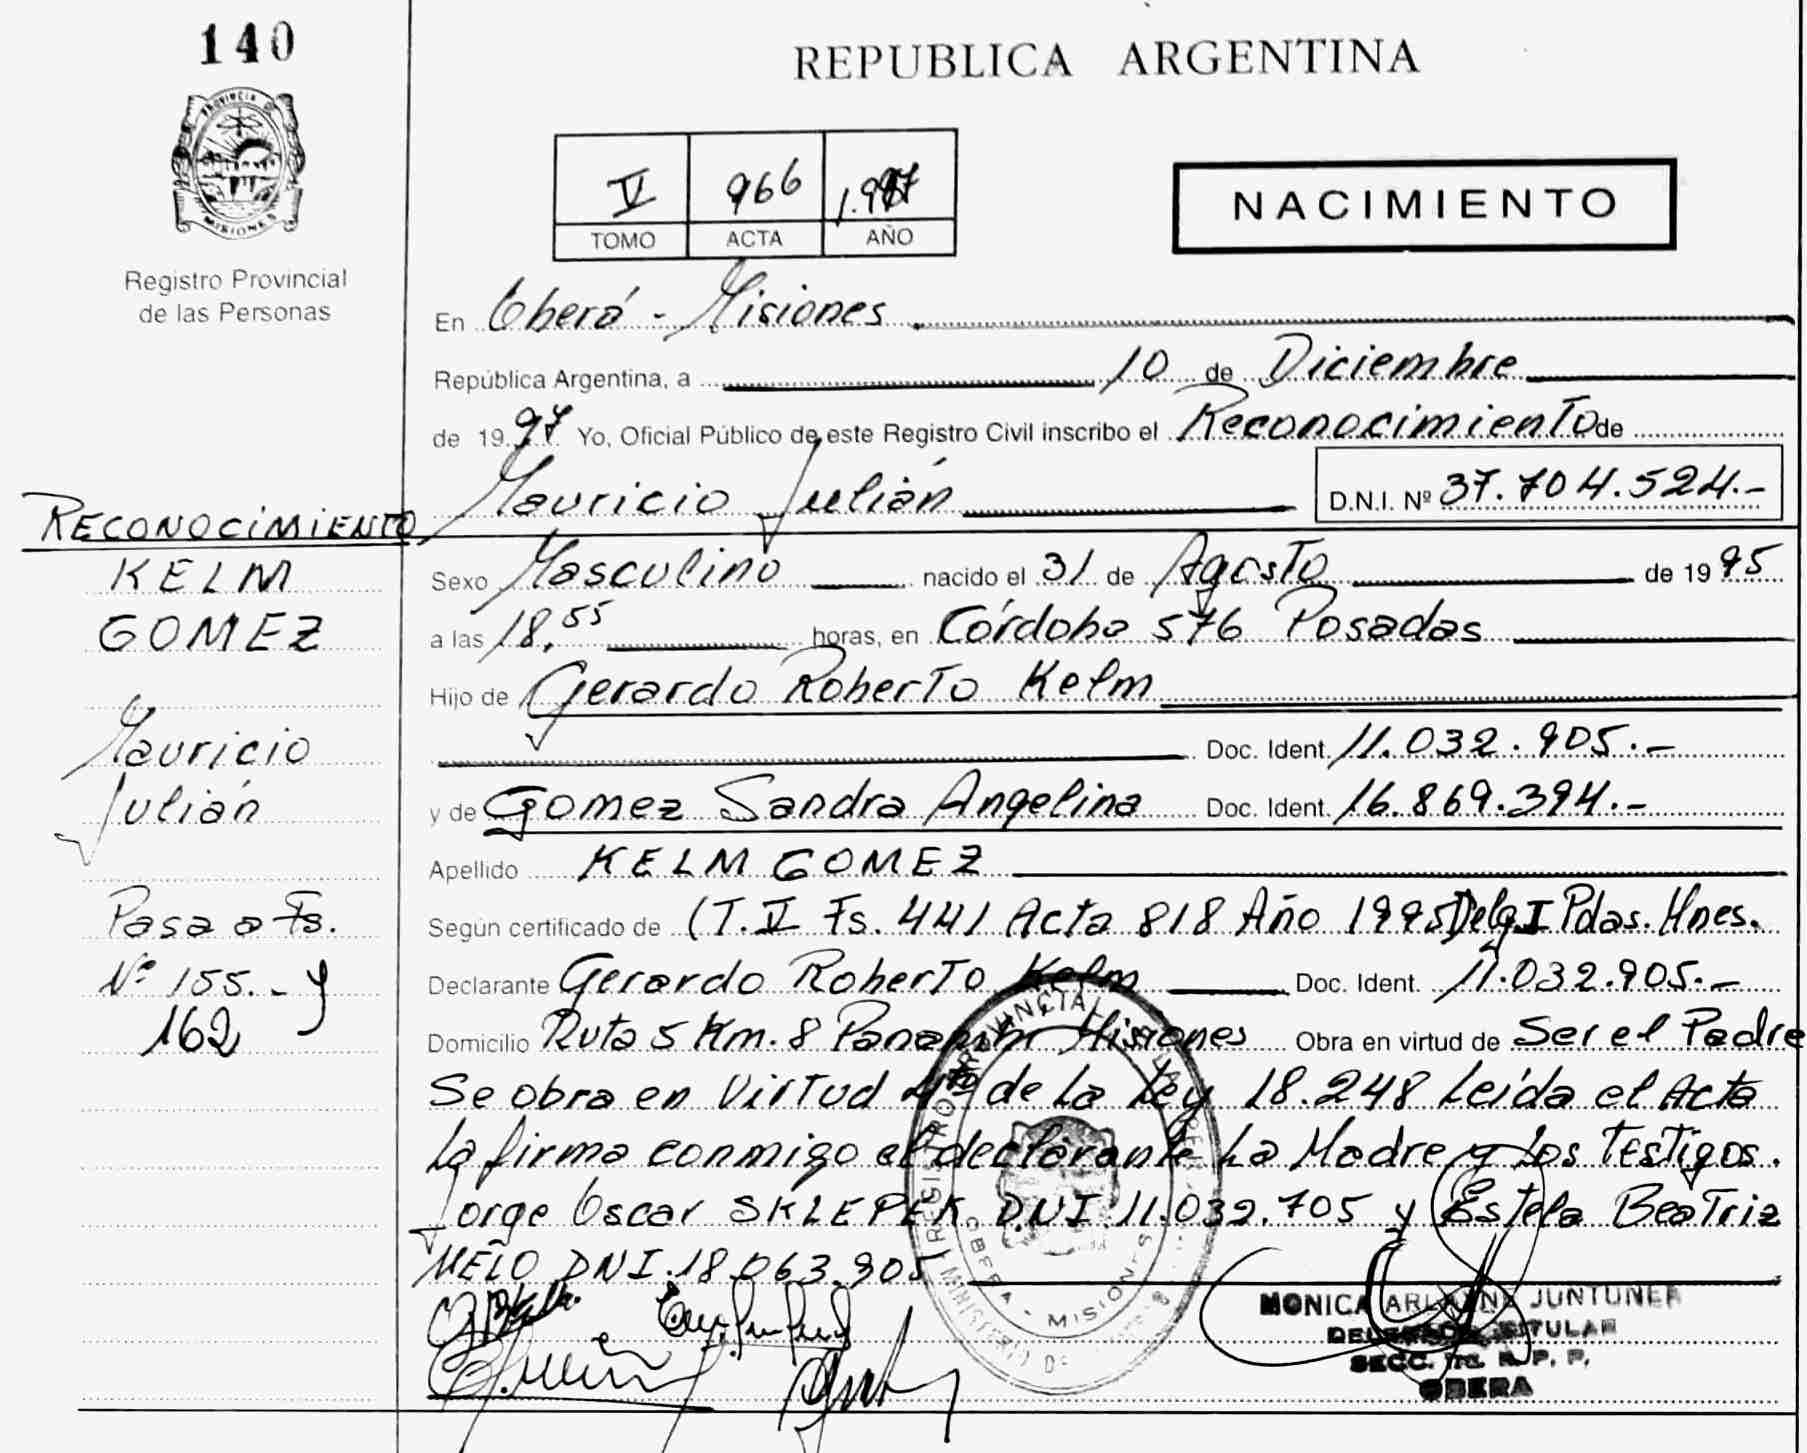 140
PROVINCIA DE
MISIONES
Registro Provincial
de las Personas
REPUBLICA ARGENTINA
V 966 1.997
TOMO ACTA AÑO
NACIMIENTO
En Oberá - Misiones
República Argentina, a 10 de Diciembre
de 19 97 Yo, Oficial Público de este Registro Civil inscribo el Reconocimiento de
Mauricio Julián D.N.I. Nº 37.704.524.-
RECONOCIMIENTO
KELM
GOMEZ
Mauricio
Julián
Pasa a Fs.
Nº 155.- y
162
Sexo Masculino nacido el 31 de Agosto de 19 95
a las 18,55 horas, en Córdoba 576 Posadas
Hijo de Gerardo Roberto Kelm
Doc. Ident. 11.032.905.-
y de Gomez Sandra Angelina Doc. Ident. 16.869.394.-
Apellido KELM GOMEZ
Según certificado de (T. II Fs. 441 Acta 818 Año 1995 Delg. I Pdas. Mnes.
Declarante Gerardo Roberto Kelm Doc. Ident. 11.032.905.-
Domicilio Ruta 5 Km. 8 Panambi Misiones Obra en virtud de Ser el Padre
Se obra en Virtud 4to de La Ley 18.248 Leída el Acta
La firma conmigo el declarante La Madre y Los Testigos.
Jorge Oscar SKLEPEK D.N.I. 11.032.705 y Estela Beatriz
MELO DNI. 18.063.905
REGISTRO PROVINCIAL DE LAS PERSONAS
OBERA - MISIONES
MINISTERIO DE
MONICA JUNTUNEN
DELEGADA TITULAR
SECC. R. P. P.
OBERA